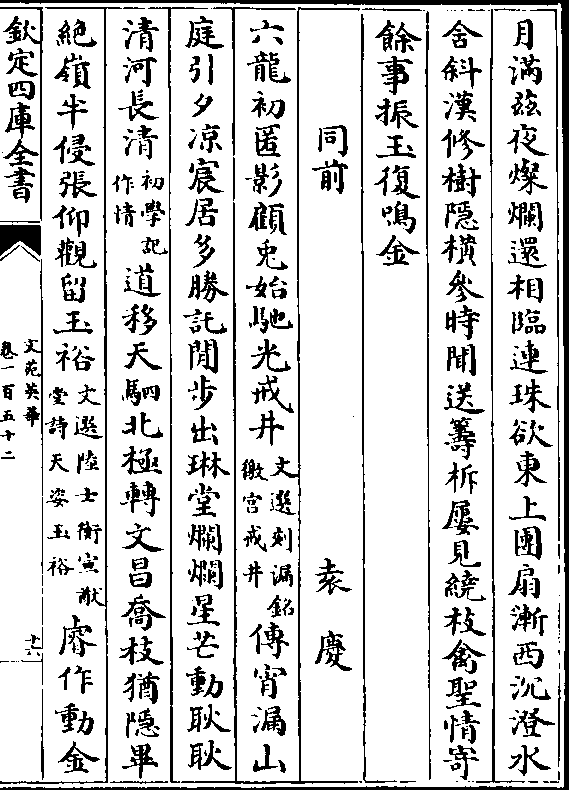 月滿茲夜燦爛還相臨連珠欲東上團扇漸西沉澄水
舍斜漢修樹隱橫參時聞送籌柝屢見繞枝禽聖情寄
餘事振玉復鳴金
同前 袁慶
六龍初匿影顧兎始馳光戒井文選刻漏銘徼宮戒井傳宵漏山
庭引夕凉宸居多勝託閒步出琳堂爛爛星芒動耿耿
清河長清初學記作情道移天駟北極轉文昌喬枝猶隱畢
絶嶺半侵張仰觀留玉裕文選陸士衡宣猷堂詩天姿玉裕睿作動金
欽定四庫全書
文苑英華
卷一百五十二
十六